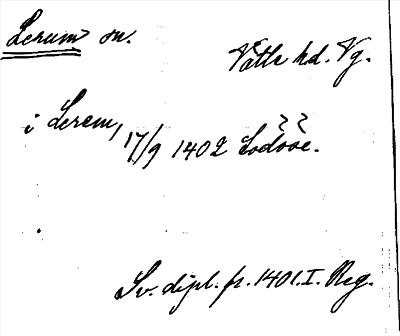 Lerum sn.
Vättle hd. Vg.
i Lerem, 17/9 1402 Lodøse.
Sv. dipl. fr. 1401. I. Reg.